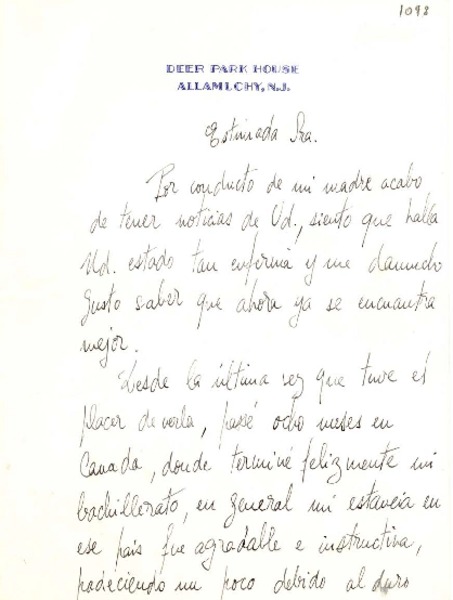 1098
DEER PARK HOUSE
ALLAMUCHY, N.J.
Estimada Sra.
Por conducto de mi madre acabo
de tener noticias de Ud., siento que halla
Ud. estado tan enferma y me da mucho
gusto saber que ahora ya se encuentra
mejor.
Desde la última vez que tuve el
placer de verla, pasé ocho meses en
Canada, donde terminé felizmente mi
bachillerato, en general mi estancia en
ese país fue agradable e instructiva,
padeciendo un poco debido al duro